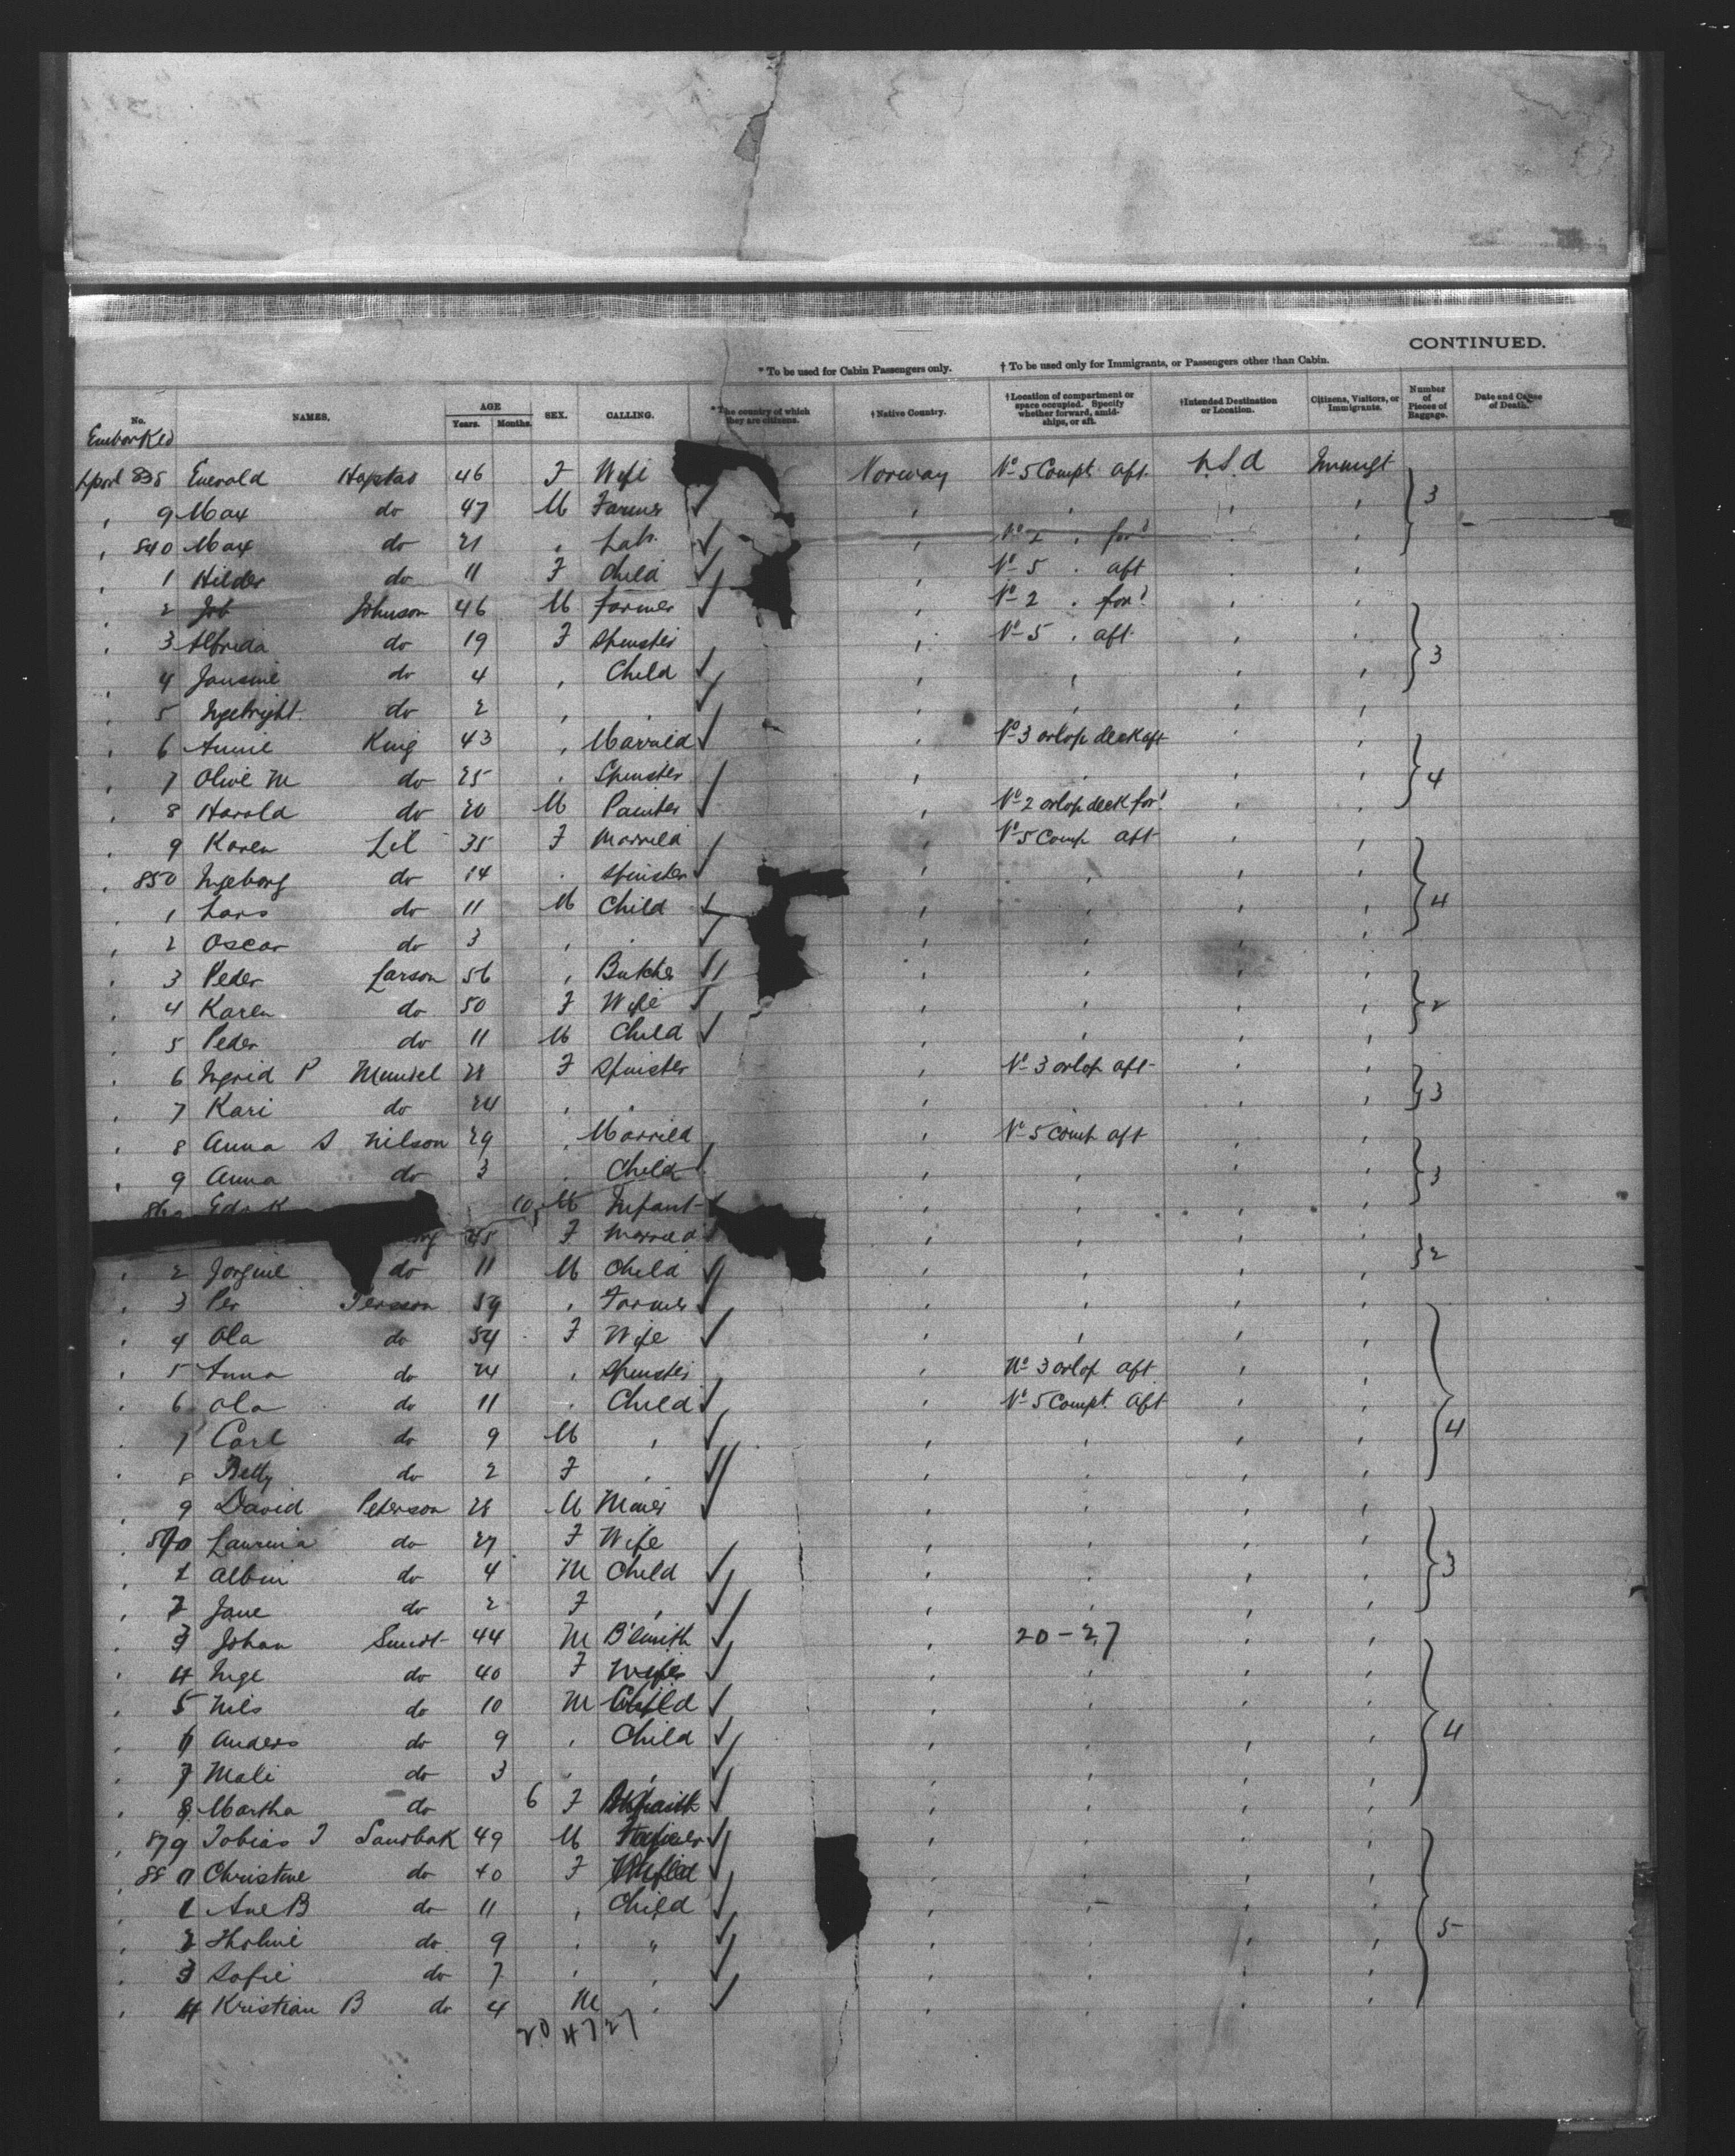 CONTINUED.
* To be used for Cabin Passengers only. † To be used only for Immigrants, or Passengers other than Cabin.
No. NAMES. AGE Years. Months. SEX. CALLING. * The country of which they are citizens. † Native Country. † Location of compartment or space occupied. Specify whether forward, amidships, or aft. † Intended Destination or Location. Citizens, Visitors, or Immigrants. Number of Pieces of Baggage. Date and Cause of Death.
Embarked
Lpool 838 Enevald Hapstad 46 F Wife Norway No 5 Compt aft. U.S.A Immigt
, 9 Max do 47 M Farmer ✓ , , , , 3
, 840 Max do 21 , Lab. ✓ , No 2 . for' . ,
, 1 Hilder do 11 F Child ✓ , No 5 . aft . ,
, 2 Job Johnson 46 M Farmer ✓ , No 2 . for' , ,
, 3 Alfrida do 19 F Spinster , No 5 . aft , , 3
, 4 do 4 , Child ✓ , , , ,
, 5 Ingebright do 2 , . ✓ , , , ,
, 6 Annie King 43 , Married ✓ , No 3 orlop deck aft , ,
, 7 Olive M do 25 . Spinster , , , , 4
, 8 Harald do 20 M Painter ✓ , No 2 orlop deck for' , ,
, 9 Karen Lil 35 F Married , No 5 Comp aft , ,
, 850 Ingeborg do 14 . Spinster ✓ , , , ,
, 1 Lars do 11 M Child ✓ , , , , 4
, 2 Oscar do 3 , . ✓ , , , ,
, 3 Peder Larson 56 , Butcher ✓ , , , ,
, 4 Karen do 50 F Wife ✓ , , , , 2
, 5 Peder do 11 M Child ✓ , , , ,
, 6 Ingrid P 28 F Spinster , No 3 orlop aft , ,
, 7 Kari do 24 , . , , , 3
, 8 Anna S Nilson 29 , Married , No 5 Comp aft , ,
, 9 Anna do 3 . Child , , , , 3
860 10 M Infant , , , ,
45 F Married , , , , 2
, 2 Jorgine do 11 M Child ✓ , , , ,
, 3 Per Person 59 , Farmer ✓ , , , ,
, 4 Ola do 54 F Wife ✓ , , , ,
, 5 Anna do 24 , Spinster , No 3 orlop aft , ,
, 6 Ola do 11 . Child ✓ , No 5 Compt. Aft , ,
, 7 Carl do 9 M , ✓ , , , , 4
, 8 Betty do 2 F , ✓ , , , ,
, 9 David Peterson 28 M Miner ✓ , , , ,
, 870 Laurina do 27 F Wife , , , ,
, 1 Albin do 4 M Child ✓ , , , , 3
, 2 Jane do 2 F , ✓ , , , ,
, 3 Johan Smidt 44 M B'smith ✓ , 20-27 , ,
, 4 Inge do 40 F Wife ✓ , , , ,
, 5 Nils do 10 M Child ✓ , , , ,
, 6 Anders do 9 , Child ✓ , , , , 4
, 7 Mali do 3 . , ✓ , , , ,
, 8 Martha do 6 F ✓ , , , ,
, 879 Tobias T Sandbak 49 M ✓ , , , ,
, 880 Christine do 40 F ✓ , , , ,
, 1 Ane B do 11 , Child ✓ , , , ,
, 2 do 9 , " ✓ , , , , 5
, 3 Sofie do 7 , , ✓ , , , ,
, 4 Kristian B do 4 M . ✓ , , , ,
20 47 27